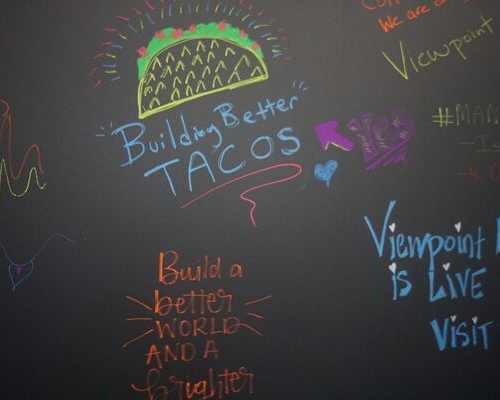 We are a
Viewpoint
Building Better
TACOS
Yes
#MAK
Viewpoint
is LIVE
VISIT
Build a
better
WORLD
AND A
brighter